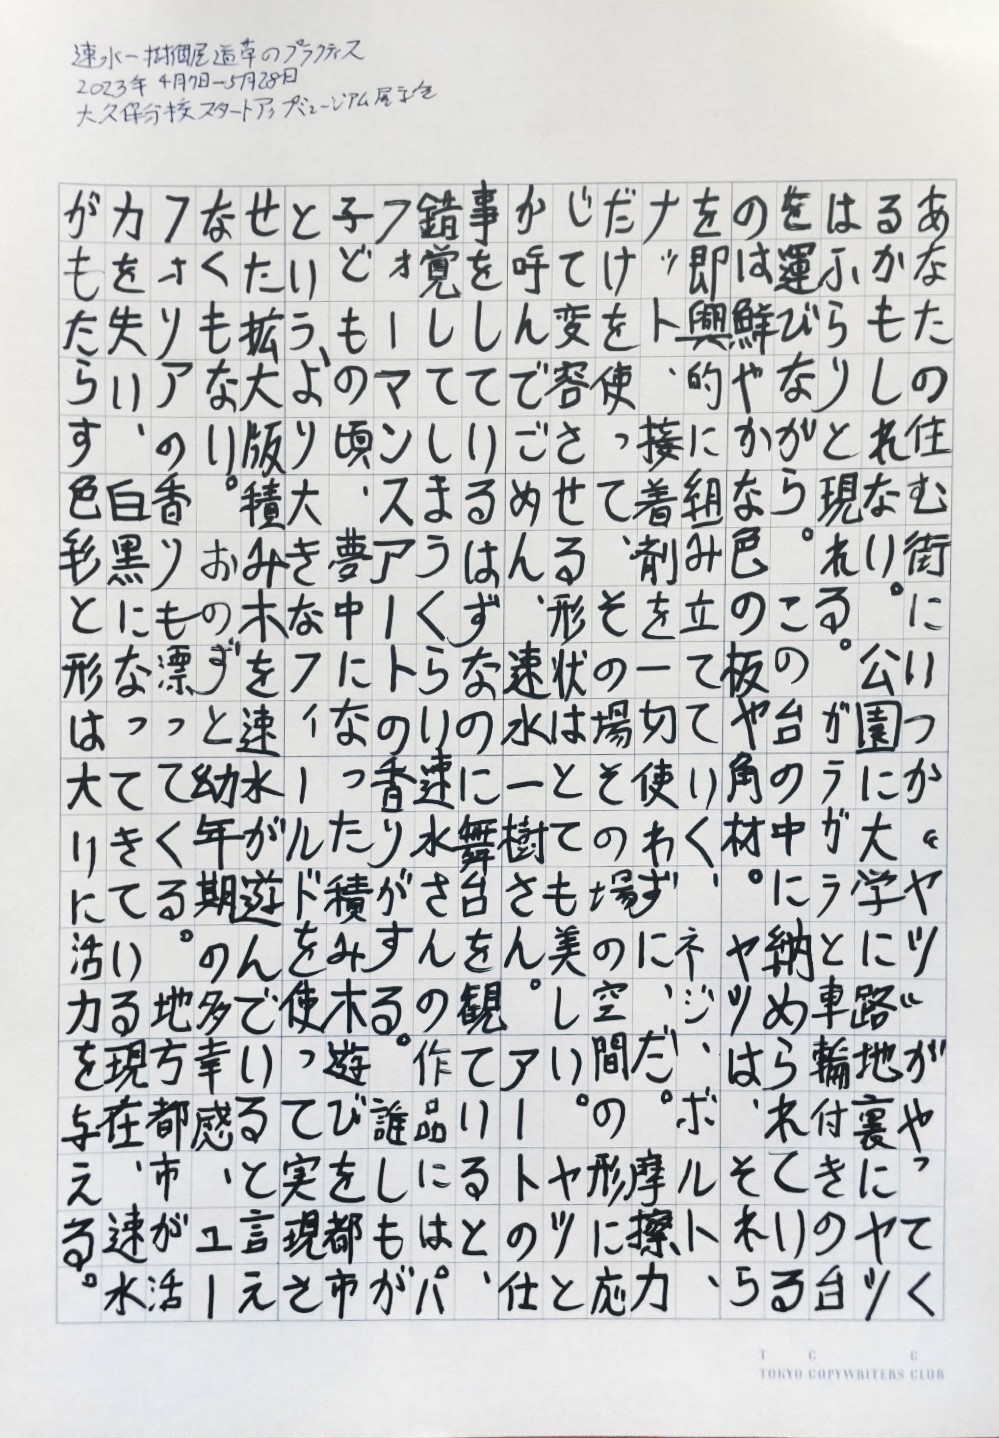 速水一樹個展道草のプラクティス
2023年 4月7日-5月28日
大久保分校スタートアップミュージアム展記念
あなたの住む街にいつか〝ヤツ〟がやってく
るかもしれない。公園に大学に路地裏にヤツ
はふらりと現れる。ガラガラと車輪付きの台
を運びながら。この台の中に納められている
のは鮮やかな色の板や角材。ヤツは、それら
を即興的に組み立てていく、ネジ、ボルト、
ナット、接着剤を一切使わずに、だ。摩擦力
だけを使って、その場その場の空間の形に応
じて変容させる形状はとても美しい。ヤツと
か呼んでごめん、速水一樹さん。アートの仕
事をしているはずなのに舞台を観ていると、
錯覚してしまうくらい速水さんの作品にはパ
フォーマンスアートの香りがする。誰しもが
子どもの頃、夢中になった積み木遊びを都市
という、より大きなフィールドを使って実現さ
せた拡大版積み木を速水が遊んでいると言え
なくもない。おのずと幼年期の多幸感、ユー
フォリアの香りも漂ってくる。地方都市が活
力を失い、白黒になってきている現在、速水
がもたらす色彩と形は大いに活力を与える。
T C C
TOKYO COPYWRITERS CLUB